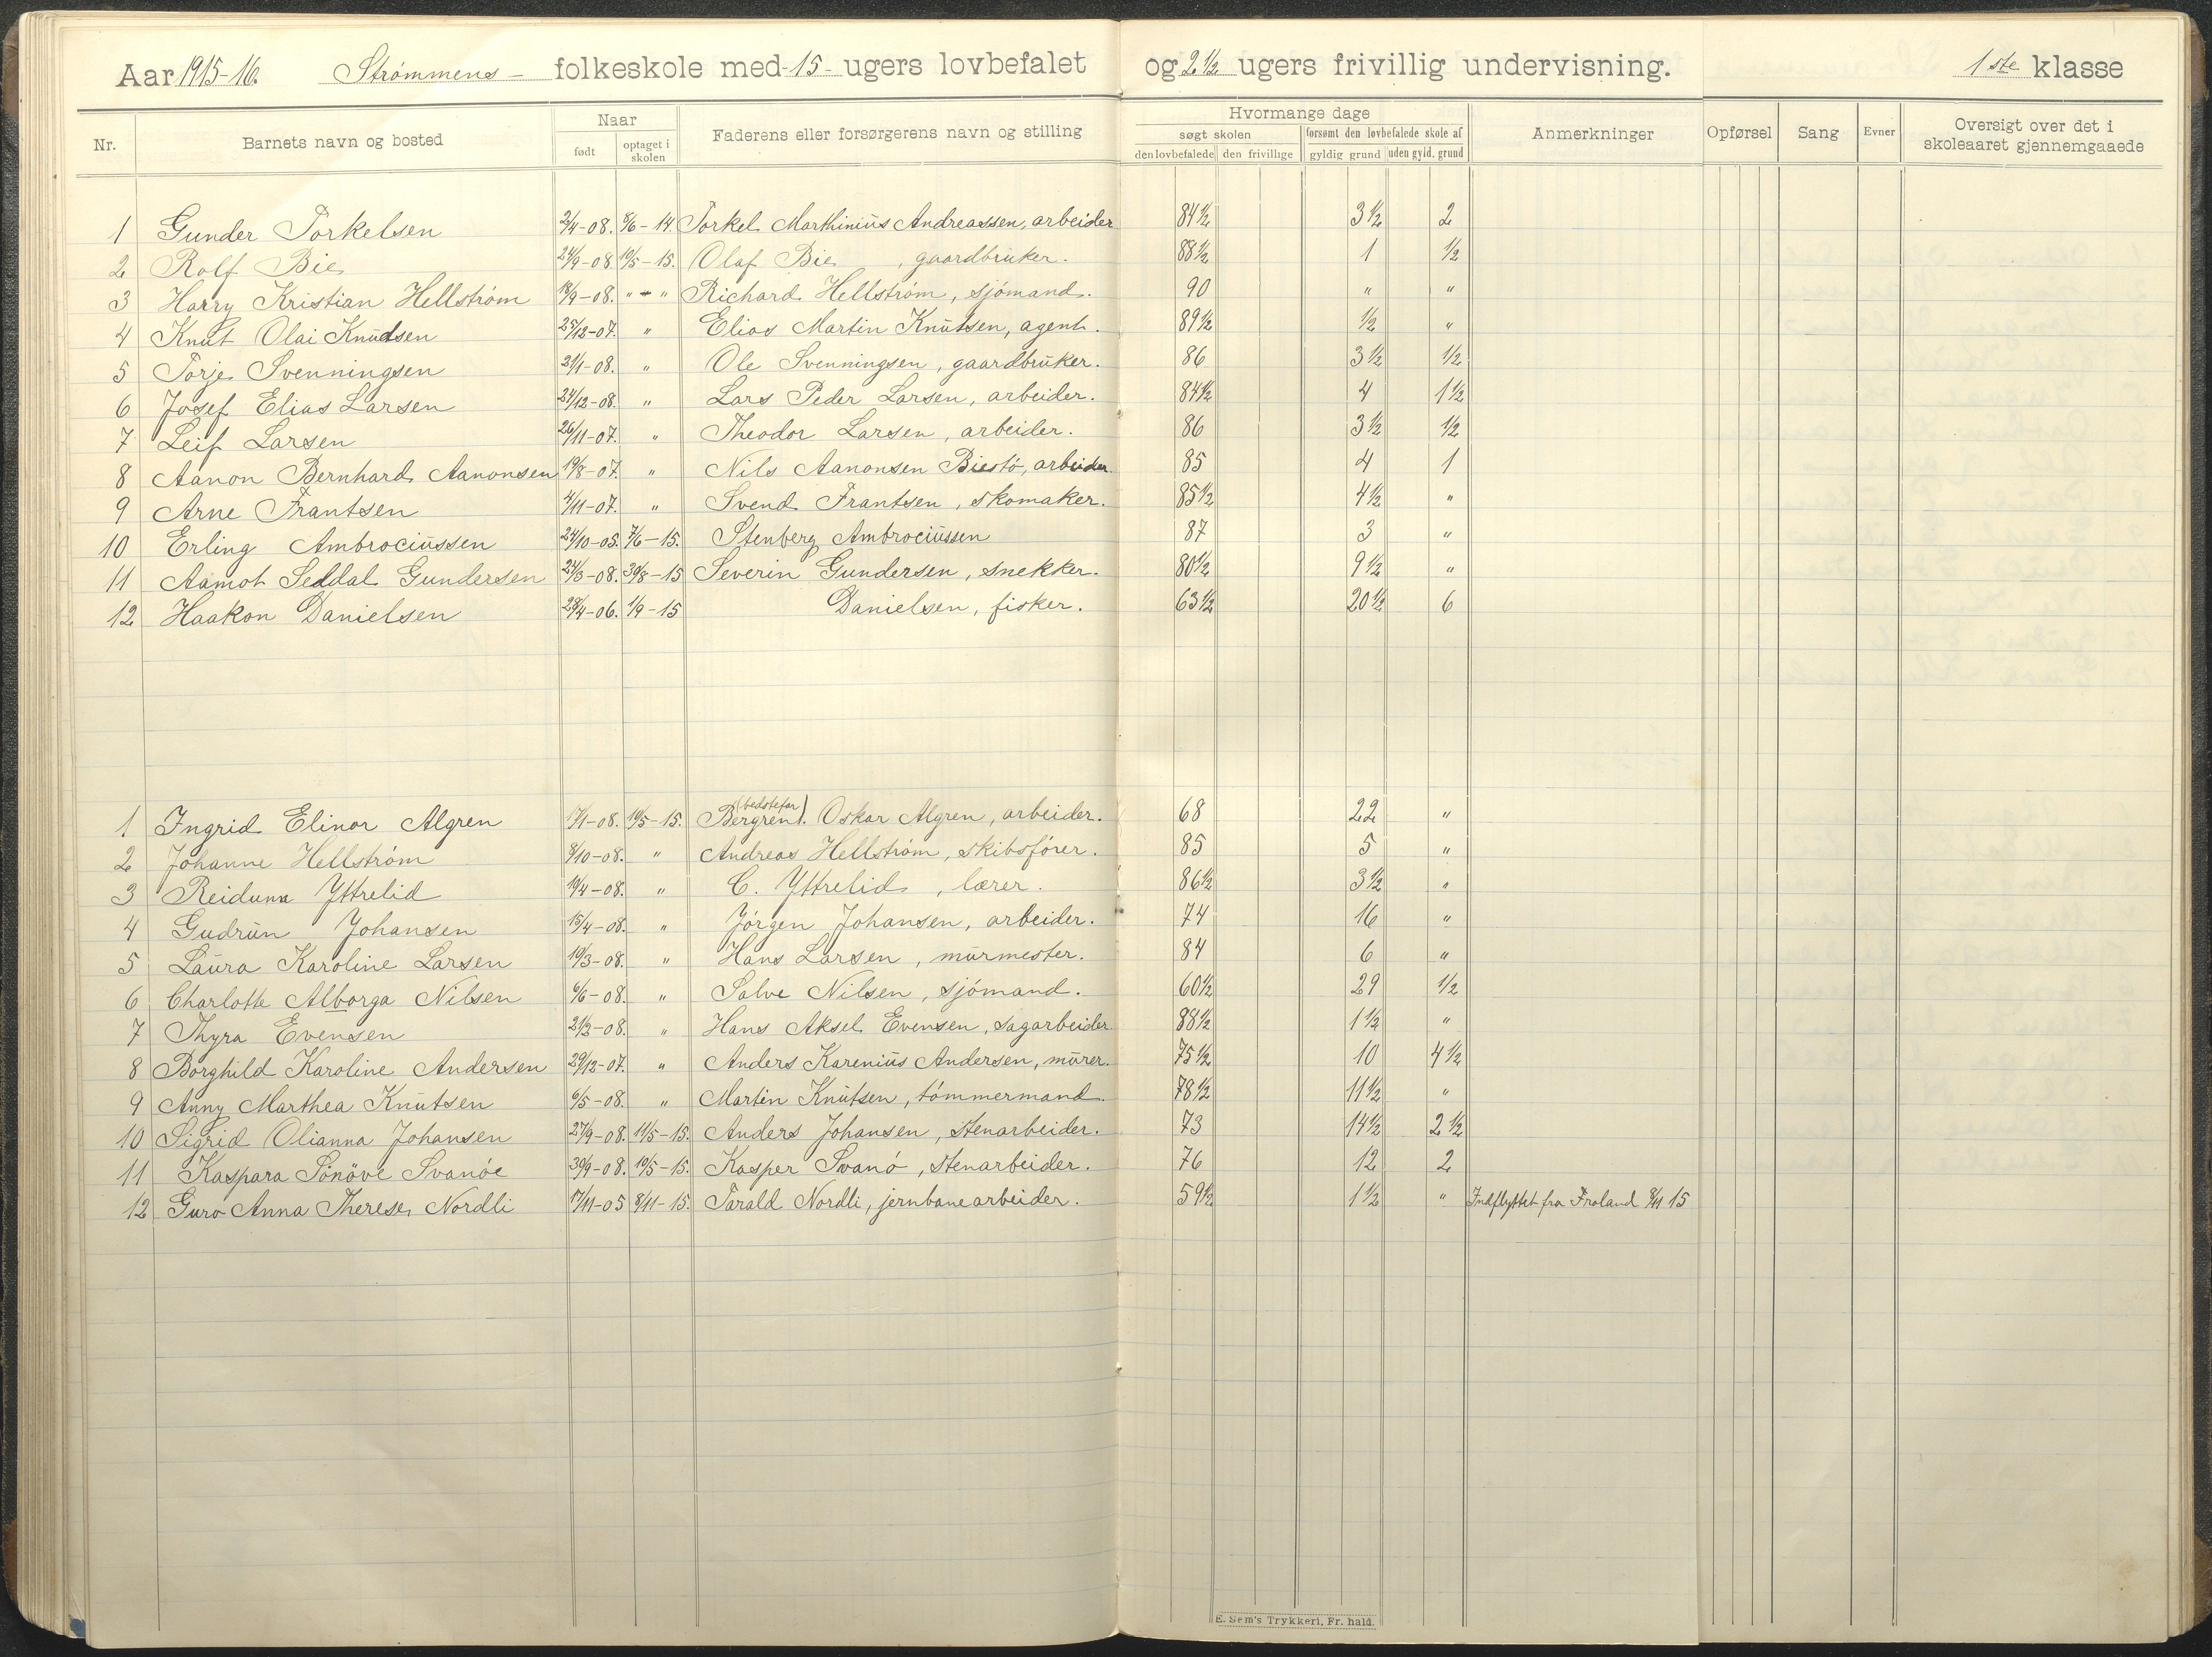 Aar 1915-16. Strømmens - folkeskole med -15- ugers lovbefalet og 2 ½ ugers frivillig undervisning. 1ste klasse
Nr. Barnets navn og bosted Naar født optaget i skolen Faderens eller forsørgerens navn og stilling Hvormange dage søgt skolen den lovbefalede den frivillige forsømt den lovbefalede skole af gyldig grund uden gyld. grund Anmerkninger Opførsel Sang Evner Oversigt over det i skoleaaret gjennemgaaede
1 Gunder Torkelsen 2/4-08. 8/6-14. Torkel Marthinius Andreassen, arbeider 84½ 3½ 2
2 Rolf Bie 24/9-08 10/5-15. Olaf Bie, gaardbruker. 88½ 1 ½
3 Harry Kristian Hellström 18/9-08. " - " Richard Hellström, sjömand. 90 " "
4 Knut Olai Knudsen 25/12-07. " Elias Martin Knutsen, agent. 89½ ½ "
5 Torje Svenningsen 21/1-08. " Ole Svenningsen, gaardbruker. 86 3½ ½
6 Josef Elias Larsen 24/12-08. " Lars Peder Larsen, arbeider. 84½ 4 1½
7 Leif Larsen 26/11-07. " Theodor Larsen, arbeider. 86 3½ ½
8 Aanon Bernhard Aanonsen 19/8-07. " Nils Aanonsen Biestö, arbeider. 85 4 1
9 Arne Frantsen 4/11-07. " Svend Frantsen, skomaker. 85½ 4½ "
10 Erling Ambrociussen 24/10-05. 7/6-15. Stenberg Ambrociussen 87 3 "
11 Aamot Seddal Gundersen 24/3-08. 30/8-15 Severin Gundersen, snekker. 80½ 9½ "
12 Haakon Danielsen 28/4-06. 1/9-15 Danielsen, fisker. 63½ 20½ 6
1 Ingrid Elinor Algren 17/1-08. 10/5-15. Bergren (bedstefar). Oskar Algren, arbeider. 68 22 "
2 Johanne Hellström 8/10-08. " Andreas Hellström, skibsförer. 85 5 "
3 Reidunn Yttrelid 10/4-08. " C. Yttrelid, lærer. 86½ 3½ "
4 Gudrun Johansen 15/4-08. " Jörgen Johansen, arbeider. 74 16 "
5 Laura Karoline Larsen 10/3-08. " Hans Larsen, murmester. 84 6 "
6 Charlotte Alborga Nilsen 6/6-08. " Salve Nilsen, sjömand. 60½ 29 ½
7 Thyra Evensen 21/2-08. " Hans Aksel Evensen, sagarbeider. 88½ 1½ "
8 Borghild Karoline Andersen 29/12-07. " Anders Karenius Andersen, murer. 75½ 10 4½
9 Anny Marthea Knutsen 6/5-08. " Martin Knutsen, tömmermand. 78½ 11½ "
10 Sigrid Olianna Johansen 27/9-08. 11/5-15. Anders Johansen, stenarbeider. 73 14½ 2½
11 Kaspara Sönöve Svanöe 30/9-08. 10/5-15. Kasper Svanö, stenarbeider. 76 12 2
12 Guro Anna Therese Nordli 17/11-05 8/11-15. Tarald Nordli, jernbanearbeider. 59½ 1½ " Indflyttet fra Froland 8/11 15
E. Sem's Trykkeri, Fr. hald.